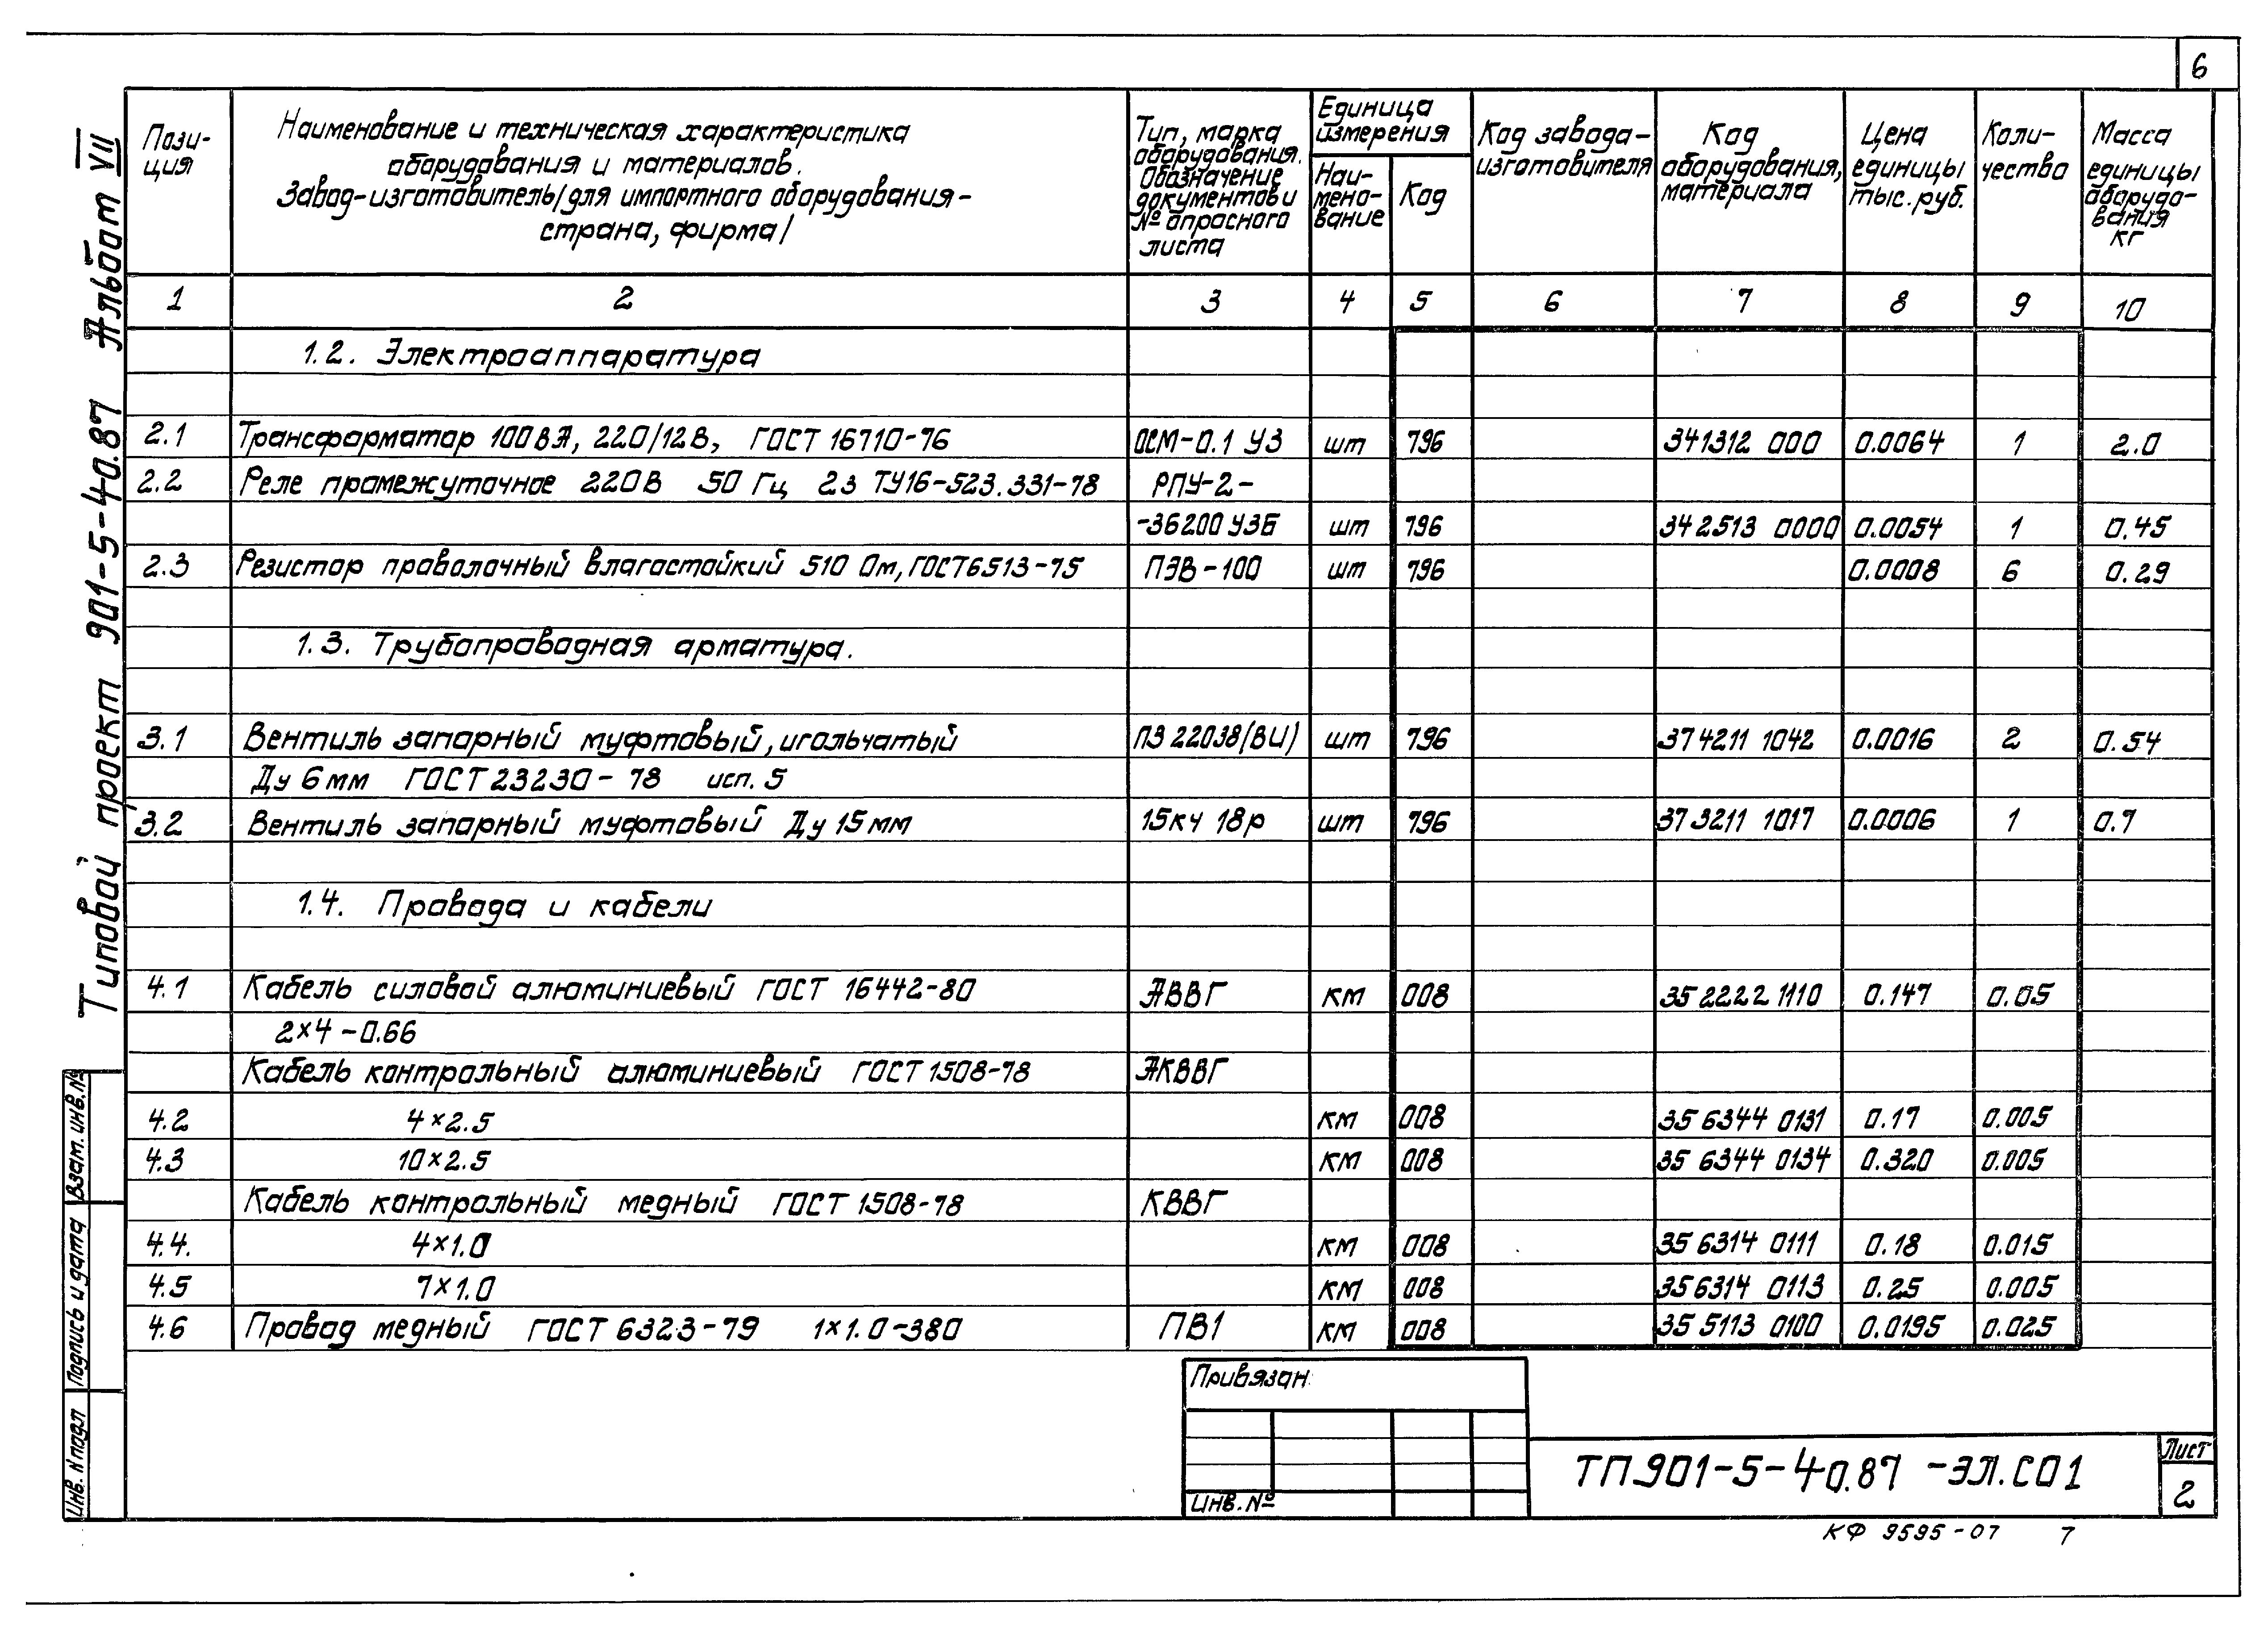 6
Пози-
ция
Наименование и техническая характеристика
оборудования и материалов.
Завод-изготовитель/для импортного оборудования-
страна, фирма/
Тип, марка
оборудования.
Обозначение
документов и
№ опросного
листа
Единица
измерения
Наи-
мено-
вание
Код
Код завода-
изготовителя
Код
оборудования,
материала
Цена
единицы
тыс. руб.
Коли-
чество
Масса
единицы
оборудо-
вания
кг
1 2 3 4 5 6 7 8 9 10
1.2. Электроаппаратура
2.1 Трансформатор 100ВА, 220/12В, ГОСТ 16710-76 ОСМ-0.1 У3 шт 796 341312 000 0.0064 1 2.0
2.2 Реле промежуточное 220В 50 Гц 2з ТУ16-523.331-78 РПУ-2-
-36200 У3Б шт 796 342513 0000 0.0054 1 0.45
2.3 Резистор проволочный влагостойкий 510 Ом, ГОСТ6513-75 ПЭВ-100 шт 796 0.0008 6 0.29
1.3. Трубопроводная арматура.
3.1 Вентиль запорный муфтовый, игольчатый ПЗ 22038(ВИ) шт 796 374211 1042 0.0016 2 0.54
Ду 6 мм ГОСТ 23230-78 исп. 5
3.2 Вентиль запорный муфтовый Ду 15 мм 15кч 18р шт 796 373211 1017 0.0006 1 0.7
1.4. Провода и кабели
4.1 Кабель силовой алюминиевый ГОСТ 16442-80 АВВГ км 008 35 2222 1110 0.147 0.05
2×4-0.66
Кабель контрольный алюминиевый ГОСТ 1508-78 АКВВГ
4.2 4×2.5 км 008 35 6344 0131 0.17 0.005
4.3 10×2.5 км 008 35 6344 0134 0.320 0.005
Кабель контрольный медный ГОСТ 1508-78 КВВГ
4.4. 4×1.0 км 008 35 6314 0111 0.18 0.015
4.5 7×1.0 км 008 35 6314 0113 0.25 0.005
4.6 Провод медный ГОСТ 6323-79 1×1.0-380 ПВ1 км 008 35 5113 0100 0.0195 0.025
Типовой проект 901-5-40.87 Альбом VII
Взам. инв. №
Подпись и дата
Инв. N подл
Привязан:
Инв. №
ТП 901-5-40.87 -ЭЛ.СО1
Лист
2
КФ 9595-07 7